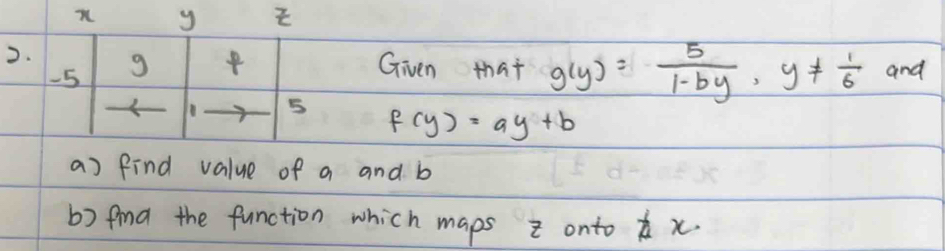 x y z
2. -5 g f Given that g(y) = 5/(1-by), y ≠ 1/6 and
1 5 f(y) = ay + b
a) find value of a and b
b) find the function which maps z onto x.